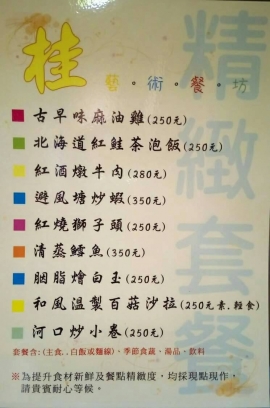 桂
藝。術。餐。坊
精緻套餐
古早味麻油雞(250元)
北海道紅鮭茶泡飯(250元)
紅酒燉牛肉(280元)
避風塘炒蝦(350元)
紅燒獅子頭(250元)
清蒸鱈魚(350元)
胭脂燴白玉(250元)
和風溫製百菇沙拉(250元素.輕食)
河口炒小卷(250元)
套餐含:(主食..白飯或麵線)、季節食蔬、湯品、飲料
※為提升食材新鮮及餐點精緻度，均採現點現作，
請貴賓耐心等候。